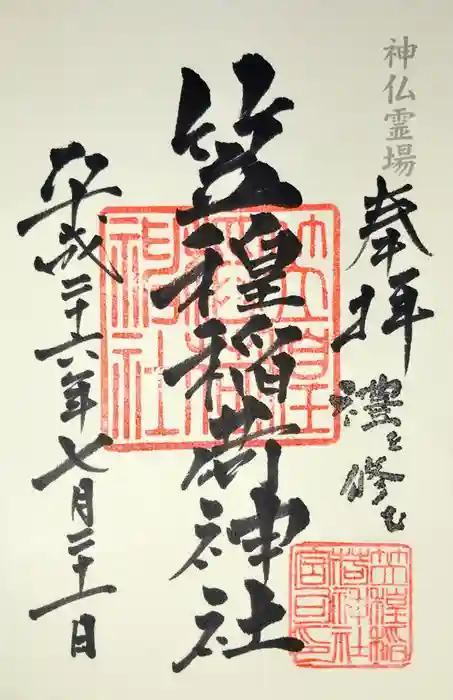 神仏霊場
奉拝
を修む
笠䅣稲荷神社
平成二十六年七月二十一日
笠䅣
稲荷
神社
笠䅣稲
荷神社
宮司印